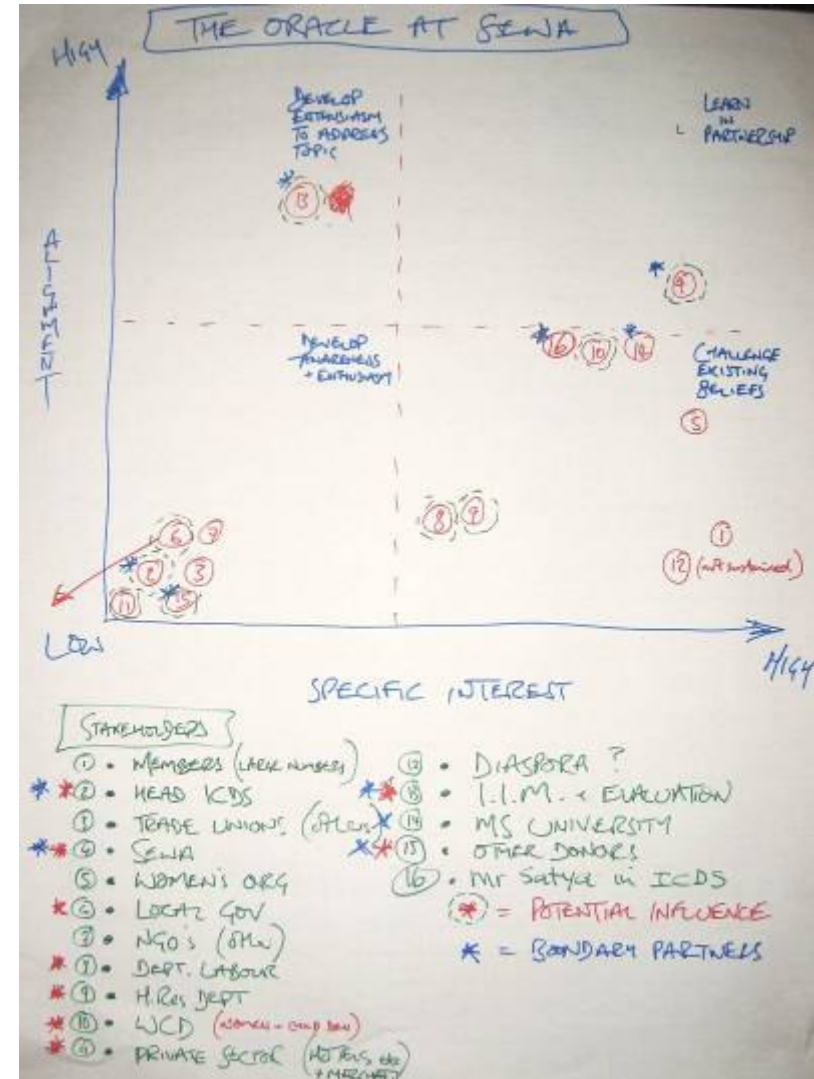 THE ORACLE AT SEWA
HIGH
DEVELOP
ENTHUSIASM
TO ADDRESS
TOPIC
LEARN
IN
PARTNERSHIP
ALIGNMENT
13
4
DEVELOP
AWARENESS
+ ENTHUSIASM
16 10 14
CHALLENGE
EXISTING
BELIEFS
5
8 9
6 7
1
2 3
12 (not sustained)
11 15
LOW
HIGH
SPECIFIC INTEREST
STAKEHOLDERS
1 • MEMBERS (LARGE NUMBERS)
2 • HEAD ICDS
3 • TRADE UNIONS (other)
4 • SEWA
5 • WOMEN'S ORG
6 • LOCAL GOV
7 • NGO's (other)
8 • DEPT. LABOUR
9 • H.Res DEPT
10 • WCD (WOMEN + CHILD DEV)
• PRIVATE SECTOR (HOTELS etc
12 • DIASPORA ?
13 • I.I.M. + EVALUATION
14 • MS UNIVERSITY
15 • OTHER DONORS
16 • Mr Satya in ICDS
* = POTENTIAL INFLUENCE
* = BOUNDARY PARTNERS